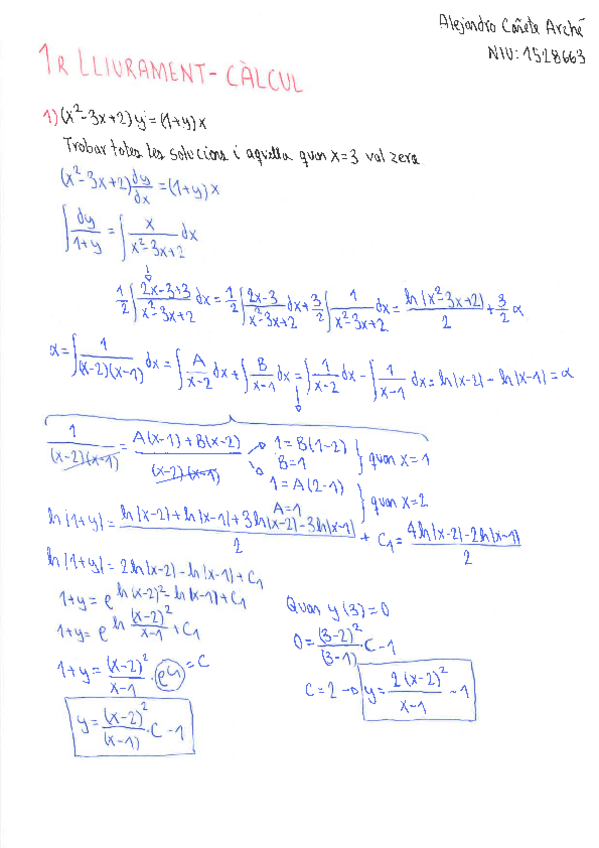 Alejandro Cañete Arché
NIU: 1528663
1R LLIURAMENT - CÀLCUL
1) (x²-3x+2) y' = (1+y) x
Trobar totes les solucions i aquella quan x=3 val zero
(x²-3x+2) dy/dx = (1+y) x
∫ dy/(1+y) = ∫ x/(x²-3x+2) dx
1/2 ∫ (2x-3+3)/(x²-3x+2) dx = 1/2 ∫ (2x-3)/(x²-3x+2) dx + 3/2 ∫ 1/(x²-3x+2) dx = ln|x²-3x+2|/2 + 3/2 α
α = ∫ 1/((x-2)(x-1)) dx = ∫ A/(x-2) dx + ∫ B/(x-1) dx = ∫ 1/(x-2) dx - ∫ 1/(x-1) dx = ln|x-2| - ln|x-1| = α
1/((x-2)(x-1)) = (A(x-1) + B(x-2))/((x-2)(x-1)) → 1 = B(1-2)
B=1 } quan x=1
1 = A(2-1)
A=1 } quan x=2
ln|1+y| = (ln|x-2| + ln|x-1| + 3ln|x-2| - 3ln|x-1|)/2 + C₁ = (4ln|x-2| - 2ln|x-1|)/2
ln|1+y| = 2ln|x-2| - ln|x-1| + C₁
1+y = e^(ln(x-2)² - ln|x-1| + C₁)
1+y = e^(ln (x-2)²/(x-1) + C₁)
1+y = (x-2)²/(x-1) · e^C₁ = C
y = (x-2)²/(x-1) · C - 1
Quan y(3)=0
0 = (3-2)²/(3-1) · C - 1
C = 2 → y = 2(x-2)²/(x-1) - 1